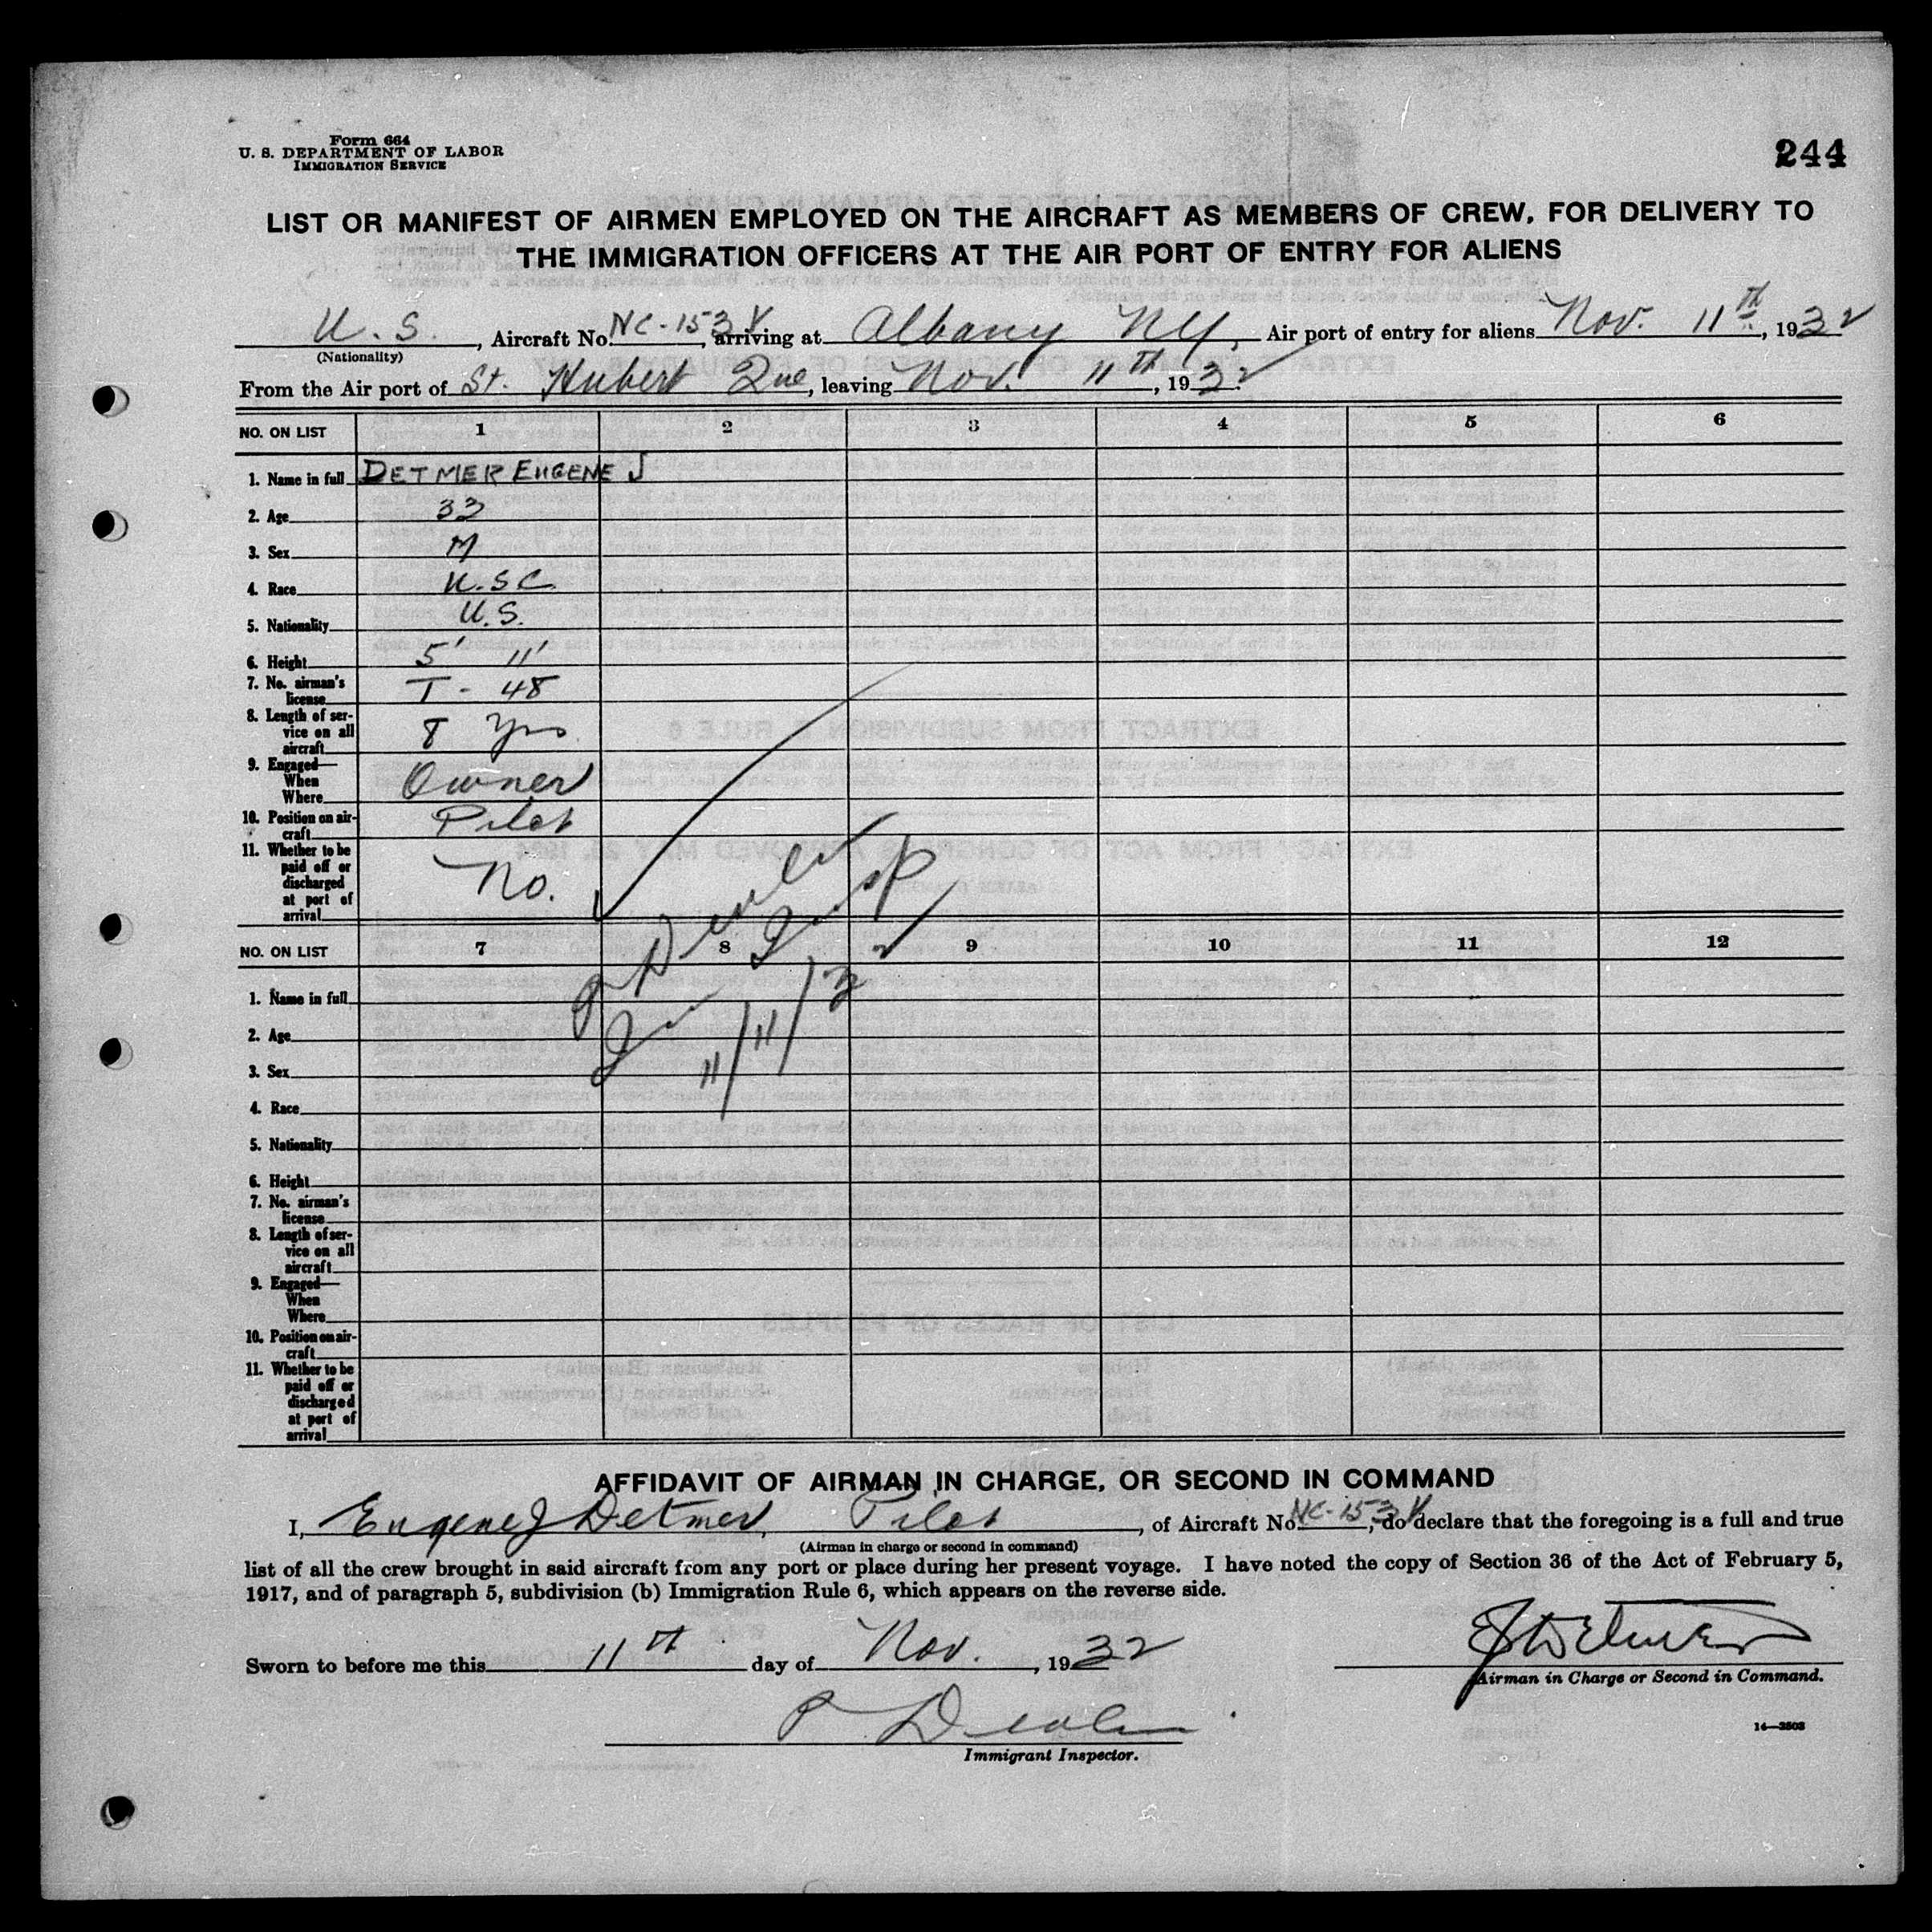 Form 664
U. S. DEPARTMENT OF LABOR
IMMIGRATION SERVICE
244
LIST OR MANIFEST OF AIRMEN EMPLOYED ON THE AIRCRAFT AS MEMBERS OF CREW, FOR DELIVERY TO
THE IMMIGRATION OFFICERS AT THE AIR PORT OF ENTRY FOR ALIENS
U. S. , Aircraft No. NC-153V , arriving at Albany NY, Air port of entry for aliens Nov. 11th , 1932
(Nationality)
From the Air port of St. Hubert Que , leaving Nov. 11th , 1932
NO. ON LIST 1 2 3 4 5 6
1. Name in full DETMER EUGENE J
2. Age 33
3. Sex M
4. Race U.S C
5. Nationality U.S.
6. Height 5' 11'
7. No. airman's
license T - 48
8. Length of ser-
vice on all
aircraft 8 Yrs
9. Engaged—
When
Where Owner
10. Position on air-
craft Pilot
11. Whether to be
paid off or
discharged
at port of
arrival No.
P Devlin
11/11/32
NO. ON LIST 7 8 9 10 11 12
1. Name in full
2. Age
3. Sex
4. Race
5. Nationality
6. Height
7. No. airman's
license
8. Length of ser-
vice on all
aircraft
9. Engaged—
When
Where
10. Position on air-
craft
11. Whether to be
paid off or
discharged
at port of
arrival
AFFIDAVIT OF AIRMAN IN CHARGE, OR SECOND IN COMMAND
I, Eugene J Detmer, Pilot , of Aircraft No. NC-153V , do declare that the foregoing is a full and true
(Airman in charge or second in command)
list of all the crew brought in said aircraft from any port or place during her present voyage. I have noted the copy of Section 36 of the Act of February 5,
1917, and of paragraph 5, subdivision (b) Immigration Rule 6, which appears on the reverse side.
EJ Detmer
Sworn to before me this 11th day of Nov. , 1932
Airman in Charge or Second in Command.
P. Devlin
14—2503
Immigrant Inspector.